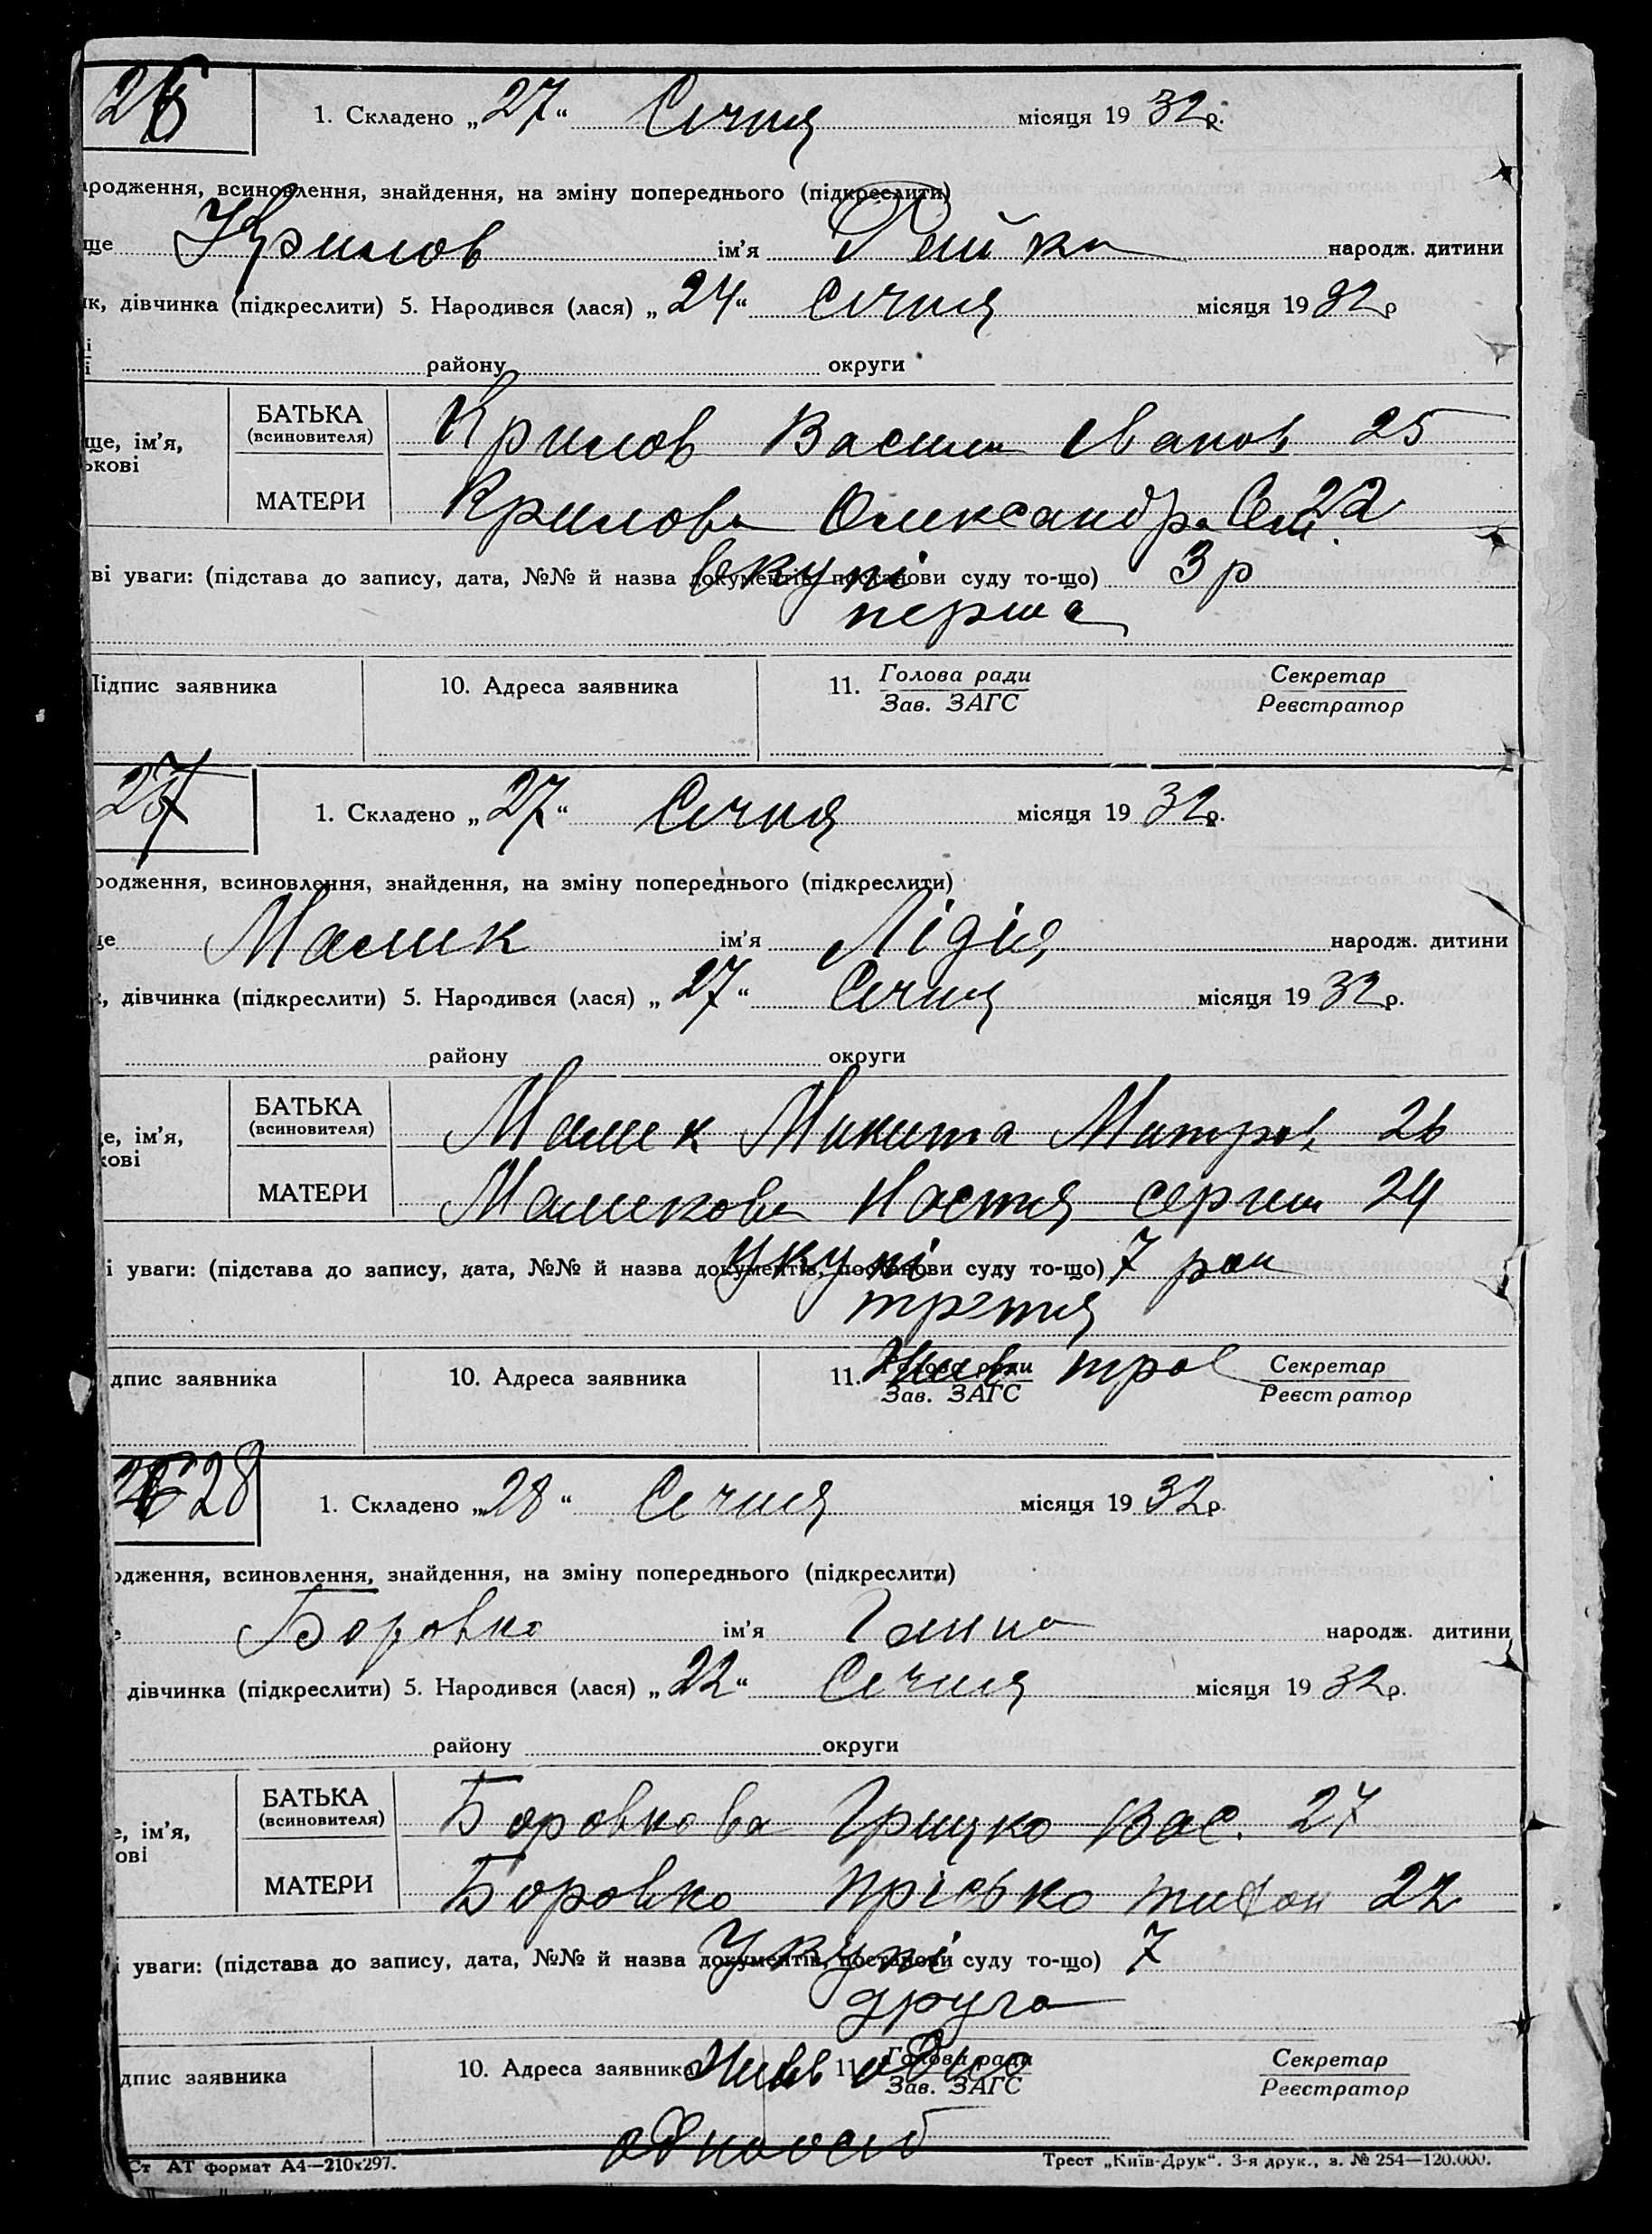 26 1. Складено „27“ Січня місяця 1932р.
ародження, всиновлення, знайдення, на зміну попереднього (підкреслити)
ще Крилов ім’я народж. дитини
ик, дівчинка (підкреслити) 5. Народився (лася) „24“ Січня місяця 1932р
і
і району округи
ще, ім’я,
ькові
БАТЬКА
(всиновителя) Крилов Васил Іванов 25
МАТЕРИ Крилова Олександра Сем. 22
ві уваги: (підстава до запису, дата, №№ й назва документів, постанови суду то-що) вкупі 3 р
перша
Підпис заявника 10. Адреса заявника 11. Голова ради Секретар
Зав. ЗАГС Реєстратор
27 1. Складено „27“ Січня місяця 1932р.
родження, всиновлення, знайдення, на зміну попереднього (підкреслити)
ще Малик ім’я Лідія народж. дитини
к, дівчинка (підкреслити) 5. Народився (лася) „27“ Січня місяця 1932р.
району округи
ще, ім’я,
кові
БАТЬКА
(всиновителя) Малик Микита Митров 26
МАТЕРИ Маликова Настя 24
і уваги: (підстава до запису, дата, №№ й назва документів, постанови суду то-що) укупі 7 рок
третя
дпис заявника 10. Адреса заявника 11. Голова ради Живв троє Секретар
Зав. ЗАГС Реєстратор
28 1. Складено „28“ Січня місяця 1932р.
одження, всиновлення, знайдення, на зміну попереднього (підкреслити)
е Боровко ім’я Ганна народж. дитини
дівчинка (підкреслити) 5. Народився (лася) „22“ Січня місяця 1932р.
району округи
е, ім’я,
ові
БАТЬКА
(всиновителя) Боровкова Грицко Вас. 27
МАТЕРИ Боровко Прісько 22
і уваги: (підстава до запису, дата, №№ й назва документів, постанови суду то-що) Укупі 7
друга
дпис заявника 10. Адреса заявника Живв 11. Голова ради Секретар
Зав. ЗАГС Реєстратор
Ст АТ формат А4—210х297. Трест „Київ-Друк“. 3-я друк., з. № 254—120.000.